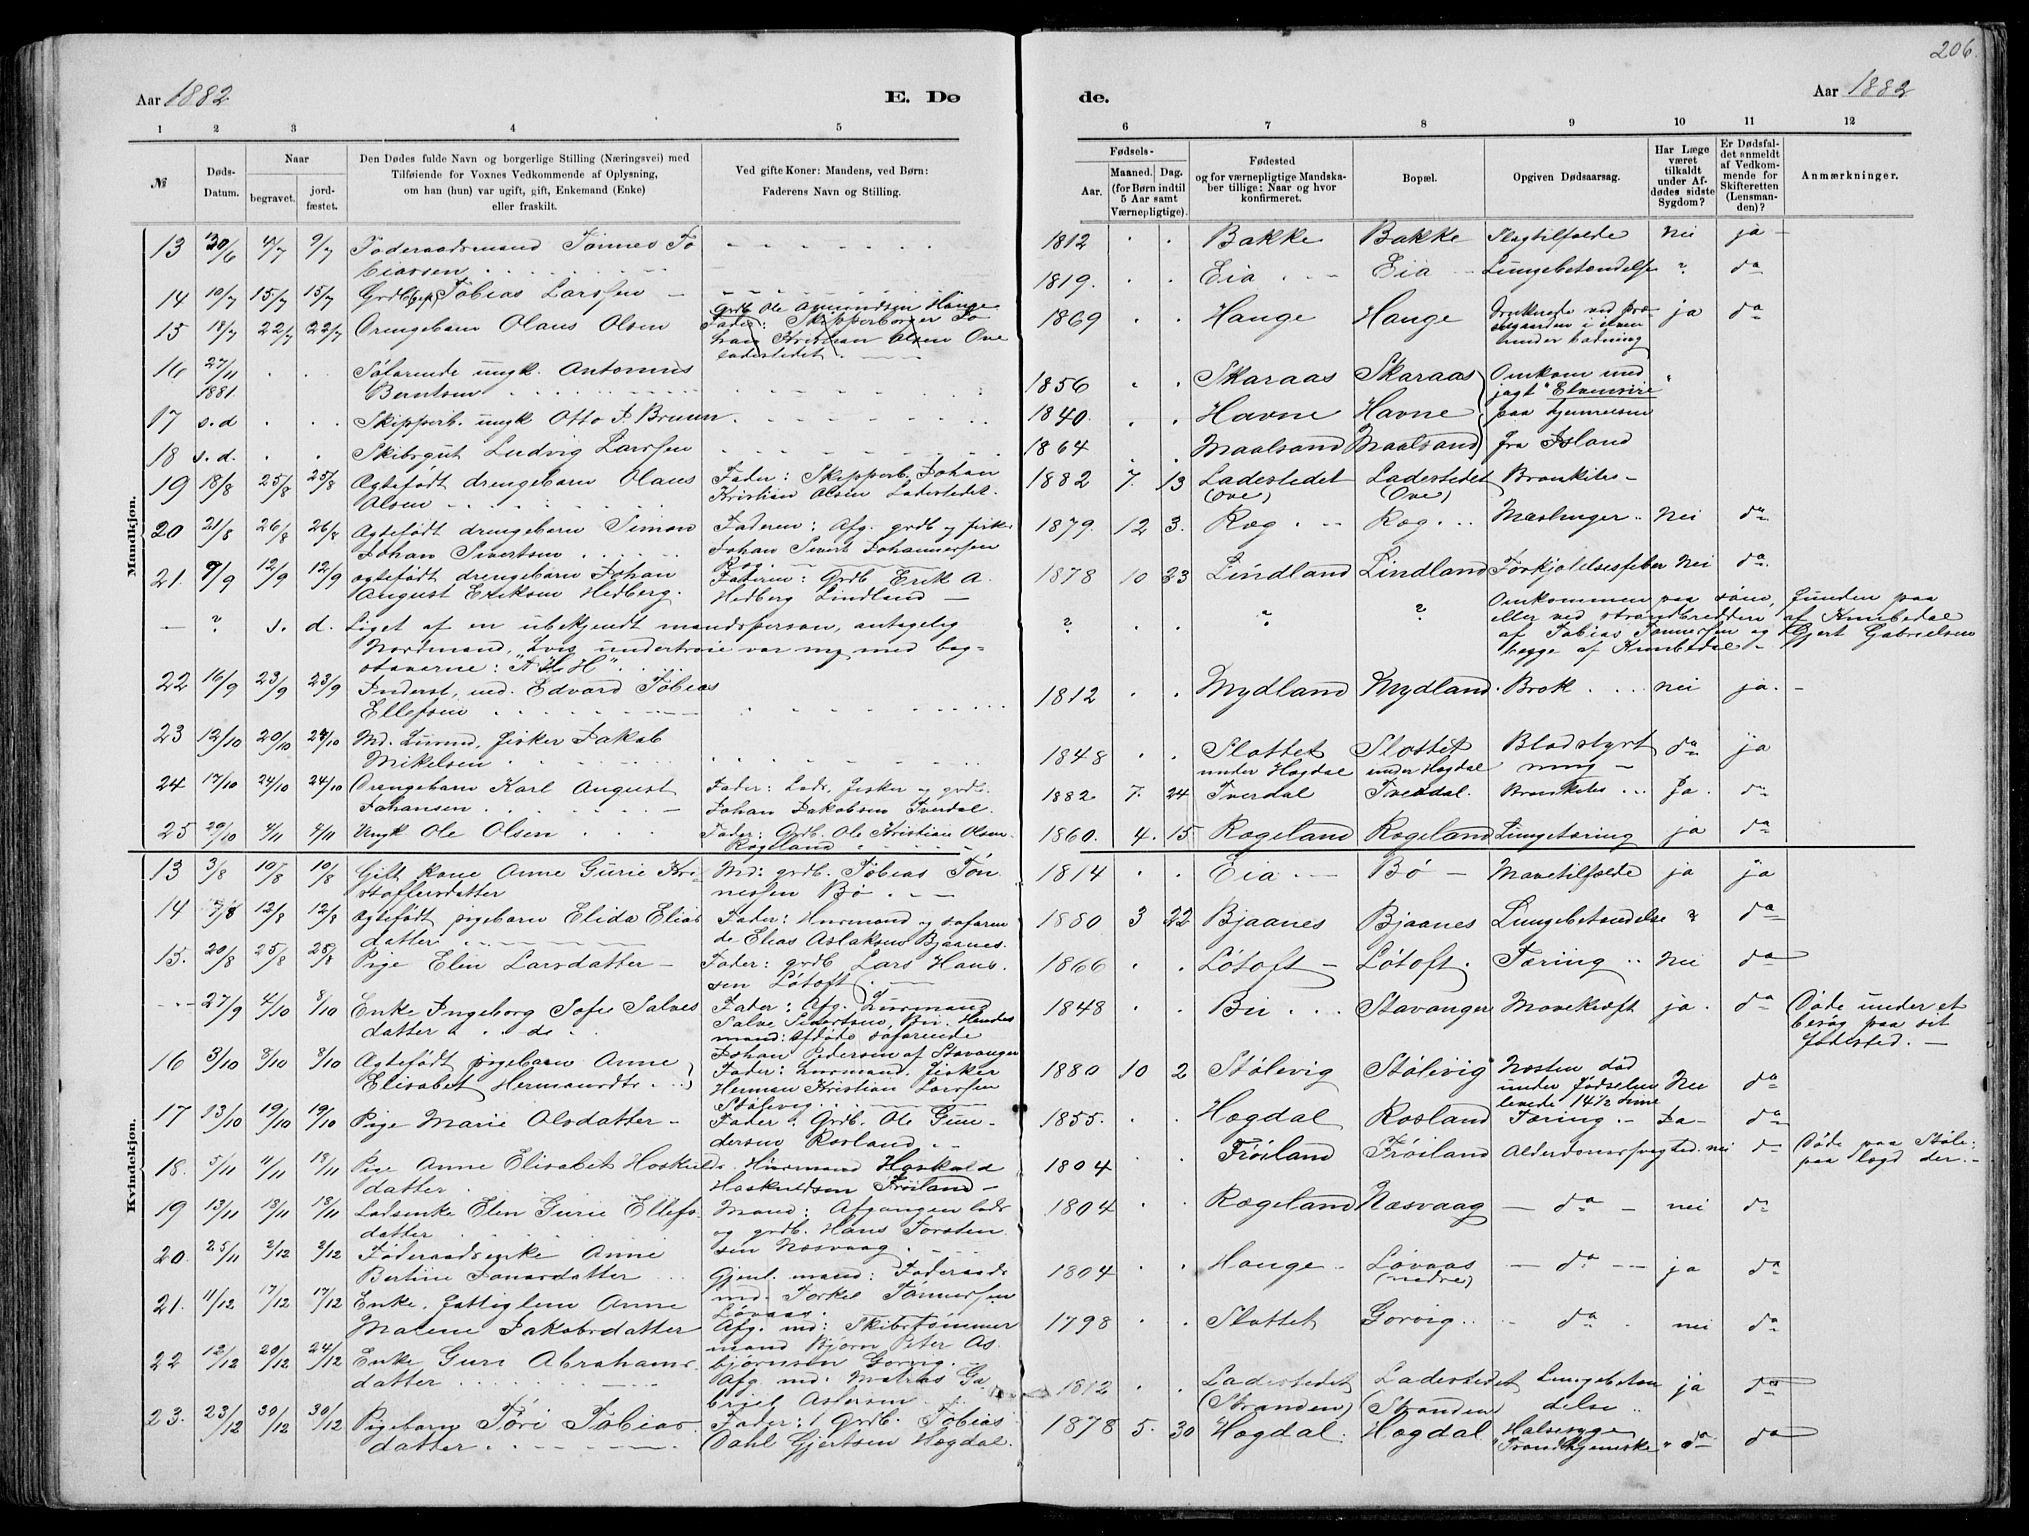 206.
Aar 1882
E. Dø
de.
Aar 1882
1 2 3 4 5 6 7 8 9 10 11 12
№
Døds-
Datum.
Naar
begravet.
jord-
fæstet.
Den Dødes fulde Navn og borgerlige Stilling (Næringsvei) med
Tilføiende for Voxnes Vedkommende af Oplysning,
om han (hun) var ugift, gift, Enkemand (Enke)
eller fraskilt.
Ved gifte Koner: Mandens, ved Børn:
Faderens Navn og Stilling.
Fødsels-
Aar.
Maaned.
Dag.
(for Børn indtil
5 Aar samt
Værnepligtige).
Fødested
og for værnepligtige Mandska-
ber tillige: Naar og hvor
konfirmeret.
Bopæl.
Opgiven Dødsaarsag.
Har Læge
været
tilkaldt
under Af-
dødes sidste
Sygdom?
Er Dødsfal-
det anmeldt
af Vedkom-
mende for
Skifteretten
(Lensman-
den)?
Anmærkninger.
Mandkjøn.
13 30/6 4/7 9/7 Føderaadsmand Tønnes To
biassen
1812 Bakke Bakke Slagtilfælde Nei ja
14 10/7 15/7 15/7 Grdb. Tobias Larssen
1819. Eia Eia Lungebetændelse " da
15 18/7 22/7 22/7 Drengebarn Olaus Olsen
Grdb Ole Aanundsen Hauge
Fader: Skipperborger Jo
han Kristian Olsen Ove
ladestedet
1869 Hauge Hauge Druknede ved
i elven
under badning ja da
16 27/11 1881. Søfarende ungk. Antonius
Berntsen
1856 Skaraas Skaraas Omkom med
jagt "Elvensire
17 s.d Skipperb. ungk Otto J. Bruun
1840. Havne Havne paa hjemreisen
18 s.d. Skibsgut Ludvig Larssen
1864 Maalsand Maalsand fra Island
19 18/8 25/8 25/8 Ægtefødt drengebarn Olaus
Olsen
Fader: Skipperb. Johan
Kristian Olsen Ladestedet.
1882 7. 13 Ladestedet (Ove) Ladestedet (Ove) Bronkites
20 21/8 26/8 26/8 Ægtefødt drengebarn Simon
Johan Sivertsen
Faderen: Afg. grdb og fisk.
Johan Sivert Johannessen
Røg.
1879. 12 3. Røg Røg Mæslinger Nei da
21. 9/9 12/9 12/9 ægtefødt drengebarn Johan
August Eriksen Hedberg.
Faderen: Grdb Erik A.
Hedberg Lindland
1878 10 23 Lindland Lindland Forkjølelsesfeber Nei da.
— ? s. d. Liget af en ubekjendt mandsperson, antagelig
Nordmand, hvis undertrøie var mrk med bog-
staverne: "A H H"
? ? ? Omkommen paa søen,
eller ved strandbredden
af Tobias Tønnessen og
begge af Knubedal
Funden paa
af Knubedal
Gjert Gabrielsen
22 16/9 23/9 23/9 Inderst, md. Edvard Tobias
Ellefsen
1812 Mydland Mydland. Brok nei ja.
23 12/10 20/10 20/10 Md. Husmd, fisker Jakob
Mikelsen
1848 Slottet
under Hogdal Slottet
under Hogdal Blodstyrt
ning da ja
24 17/10 24/10 24/10 Drengebarn Karl August
Johansen
Fader: Lods, fisker og grdb.
Johan Jakobsen Tverdal.
1882 7. 24 Tverdal Tverdal. Bronkites Ja. da
25 29/10 4/11 4/11 Ungk Ole Olsen
Fader: Grdb. Ole Kristian Olsen
Rægeland
1860. 4. 15 Rægeland Rægeland Lungetæring ja da
Kvindekjøn.
13 3/8 10/8 10/8 Gift Kone Anne Gurie Kri-
stoffersdatter
Md: grdb. Tobias Tøn
nessen Bø
1814 Eia Bø Mavetilfælde ja ja
14 7/8 12/8 12/8 ægtefødt pigebarn Elida Elias
datter
Fader: Husmand og søfaren
de Elias Aslaksen Bjaanes.
1880 3 22 Bjaanes Bjaanes Lungebetændelse " da
15. 20/8 25/8 25/8 Pige Elen Larsdatter
Fader: grdb Lars Hans
sen Løtoft
1866 Løtoft Løtoft. Tæring Nei da
27/9 4/10 8/10 Enke Ingeborg Sofie Salves
datter
Fader: Afg. Husmand
Salve Sivertsen, Bu. Hendes
mand: Afdøde søfarende
Johan Pedersen af Stavanger
1848 Bu Stavanger Mavekræft ja. da Døde under et
besøg paa sit
fødested.
16 3/10 8/10 8/10 Ægtefødt pigebarn Anne
Elisabet Hermansdtr.
Fader: Husmand, fisker
Herman Kristian Larssen
Stølevig
1880 10 2 Stølevig Stølevig Næsten død
under fødselen
levede 14½ time Nei da
17 13/10 19/10 19/10 Pige Marie Olsdatter
Fader: Grdb. Ole Gun-
dersen Rosland.
1855. Hogdal Rosland Tæring Ja da
18. 5/11 11/11 18/11 Pige Anne Elisabet Hoskulds
datter
Husmand Hoskuld
Hoskuldsen Frøiland
1804 Frøiland Frøiland Alderdomssvaghed. nei da Døde paa Støle:
paa lægd der.
19 13/11 18/11 18/11 Lodsenke Elen Gurie Ellefs
datter
Mand: Afgangen lods
og grdb. Hans Torsten
sen Næsvaag
1804 Rægeland Næsvaag da nei da
20. 25/11 2/12 2/12 Føderaadsenke Anne
Bertine Jonasdatter
Gjenl. mand: Føderaads
md. Torkel Tønnessen
Løvaas.
1804 Hauge Løvaas
(nedre) da ja da
21. 11/12 17/12 17/12 Enke. fattiglem Anne
Malene Jakobsdatter
Afg. md: Skibstømmer
mand Bjørn Peter As
bjørnsen Gorvig.
1798 Slottet Gorvig da nei da
22 12/12 20/12 24/12 Enke Guri Abrahams
datter
Afg. md: Matias Ga
briel Aslesen
1812 Ladestedet
(Stranden) Ladestedet
(Stranden) Lungebetæn
delse ja da
23. 23/12 30/12 30/12 Pigebarn Tøri Tobias
datter
Fader: Grdb. Tobias
Dahl Gjertsen Hogdal.
1878 5. 30 Hogdal Hogdal Halssyge
" da da